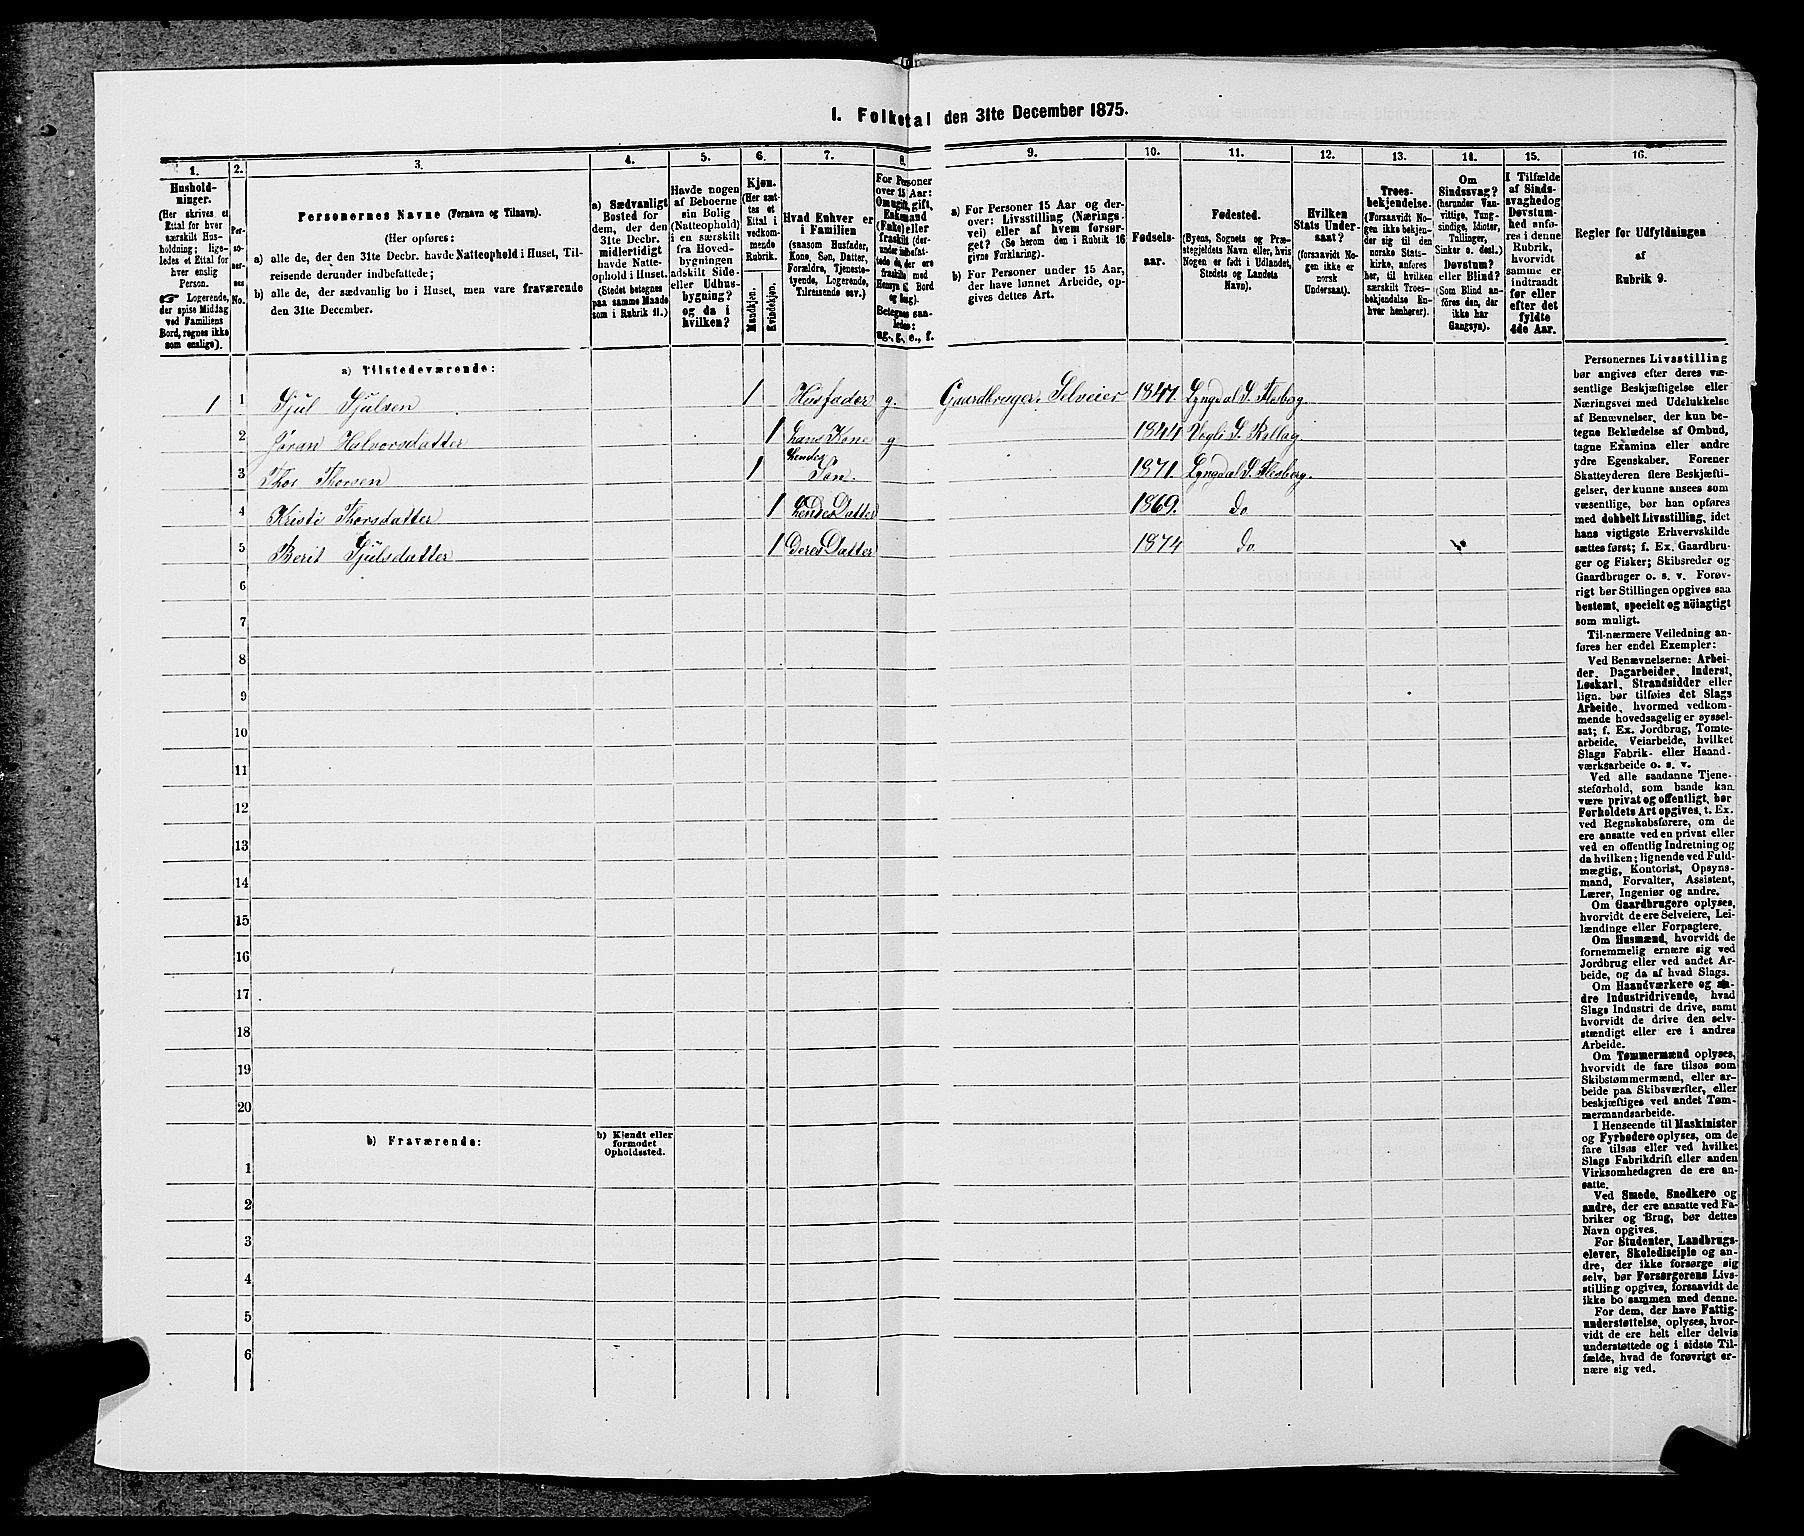 1. Folketal den 31te December 1875.
1.
2.
3.
4.
5.
6.
7.
8.
9.
10.
11.
12.
13.
14.
15.
16.
Hushold-
ninger.
(Her skrives et
Ettal for hver
særskilt Hus-
holdning; lige-
ledes et Ettal for
hver enslig
Person.
☞ Logerende,
der spise Middag
ved Familiens
Bord, regnes ikke
som enslige).
Per-
so-
ner-
nes
No.
Personernes Navne (Fornavn og Tilnavn).
(Her opføres:
a) alle de, der den 31te Decbr. havde Natteophold i Huset, Til-
reisende derunder indbefattede;
b) alle de, der sædvanlig bo i Huset, men vare fraværende
den 31te December.
a) Sædvanligt
Bosted for
dem, der den
31te Decbr.
midlertidigt
havde Natte-
ophold i Huset.
(Stedet betegnes
paa samme Maade
som i Rubrik 11.)
Havde nogen
af Beboerne
sin Bolig
(Natteophold)
i en særskilt
fra Hoved-
bygningen
adskilt Side-
eller Udhus-
bygning?
og da i
hvilken?
Kjøn.
(Her sæt-
tes et
Ettal i
vedkom-
mende
Rubrik.
Mandkjøn.
Kvindekjøn.
Hvad Enhver er
i Familien
(saasom Husfader,
Kone, Søn, Datter,
Forældre, Tjeneste-
tyende, Logerende,
Tilreisende osv.)
For Personer
over 15 Aar:
Ombetegnes saa-
ledes:
ug., g., e., f.
a) For Personer 15 Aar og der-
over: Livsstilling (Nærings-
vei) eller af hvem forsør-
get? (Se herom den i Rubrik 16
givne Forklaring).
b) For Personer under 15 Aar,
der have lønnet Arbeide, op-
gives dettes Art.
Fødsels-
aar.
Fødested.
(Byens, Sognets og Præ-
stegjeldets Navn eller, hvis
Nogen er født i Udlandet,
Stedets og Landets
Navn).
Hvilken
Stats Under-
saat?
(forsaavidt No-
gen ikke er
norsk
Undersaat).
Troes-
bekjendelse.
(Forsaavidt No-
gen ikke bekjen-
der sig til den
norske Stats-
kirke, anføres
her, til hvilken
særskilt Troes-
bekjendelse En-
hver henhører).
Om
Sindssvag?
(herunder Van-
vittige, Tung-
sindige, Idioter,
Tullinger,
Sinker o. desl.)
Døvstum?
eller Blind?
(Som Blind an-
føres den, der
ikke har
Gangsyn).
I Tilfælde
af Sinds-
svaghed og
Døvstum-
hed anfø-
res i denne
Rubrik,
hvorvidt
samme er
indtraadt
før eller
efter det
fyldte
4de Aar.
Regler for Udfyldningen
af
Rubrik 9.
a) Tilstedeværende:
1 1 Gjul Gjulsen 1 Husfader g. Gaardbruger, Selveier 1847. Lyngdal S. Flesberg.
2 Jøran Halvorsdatter 1 hans Kone g 1844 Vegli S. Rollag
3 Thor Thorsen 1 hendes Søn. 1871. Lyngdal S. Flesberg.
4 Kristi Thorsdatter 1 hendes Datter 1869. Do
5 Berit Gjulsdatter 1 deres Datter 1874 Do
6
7
8
9
10
11
12
13
14
15
16
17
18
19
20
b) Fraværende:
b) Kjendt eller
formodet
Opholdssted.
1
2
3
4
5
6
Personernes Livsstilling
bør angives efter deres væ-
sentlige Beskjæftigelse eller
Næringsvei med Udelukkelse
af Benævnelser, der kun be-
tegne Beklædelse af Ombud,
tagne Examina eller andre
ydre Egenskaber. Forener
Skatteyderen flere Beskjæfti-
gelser, der kunne ansees som
væsentlige, bør han opføres
med dobbelt Livsstilling, idet
hans vigtigste Erhvervskilde
sættes først; f. Ex. Gaardbru-
ger og Fisker; Skibsreder og
Gaardbruger o. s. v. Forøv-
rigt bør Stillingen opgives saa
bestemt, specielt og nøiagtigt
som muligt.
Til nærmere Veiledning an-
føres her endel Exempler:
Ved Benævnelserne: Arbei-
der, Dagarbeider, Inderst,
Løskarl, Strandsidder eller
lign. bør tilføies det Slags
Arbeide, hvormed vedkom-
mende hovedsagelig er syssel-
sat; f. Ex. Jordbrug, Tomte-
arbeide, Veiarbeide, hvilket
Slags Fabrik- eller Haand-
værksarbeide o. s. v.
Ved alle saadanne Tjene-
steforhold, som baade kan
være privat og offentligt, bør
Forholdets Art opgives, t. Ex.
ved Regnskabsførere, om de
ere ansatte ved en privat eller
ved en offentlig Indretning og
da hvilken; lignende ved Fuld-
mægtig, Kontorist, Opsyns-
mand, Forvalter, Assistent,
Lærer, Ingeniør og andre.
Om Gaardbrugere oplyses,
hvorvidt de ere Selveiere, Lei-
lændinge eller Forpagtere.
Om Husmænd, hvorvidt de
fornemmelig ernære sig ved
Jordbrug eller ved andet Ar-
beide, og da af hvad Slags.
Om Haandværkere og an-
dre Industridrivende, hvad
Slags Industri de drive, samt
hvorvidt de drive den selv-
stændigt eller ere i andres
Arbeide.
Om Tømmermænd oplyses,
hvorvidt de fare tilsøs som
Skibstømmermænd, eller ar-
beide paa Skibsværfter, eller
beskjæftiges ved andet Tøm-
mermandsarbeide.
I Henseende til Maskinister
og Fyrbødere oplyses, om de
fare tilsøs eller ved hvilket
Slags Fabrikdrift eller anden
Virksomhedsgren de ere an-
satte.
Ved Smede, Snedkere og
andre, der ere ansatte ved Fa-
briker og Brug, bør dettes
Navn opgives.
For Studenter, Landbrugs-
elever, Skoledisciple og an-
dre, der ikke forsørge sig
selv, bør Forsørgerens Livs-
stilling opgives, forsaavidt de
ikke bo sammen med denne.
For dem, der have Fattig-
understøttelse, oplyses, hvor-
vidt de ere helt eller delvis
understøttede og i sidste Til-
fælde, hvad de forøvrigt er-
nære sig ved.